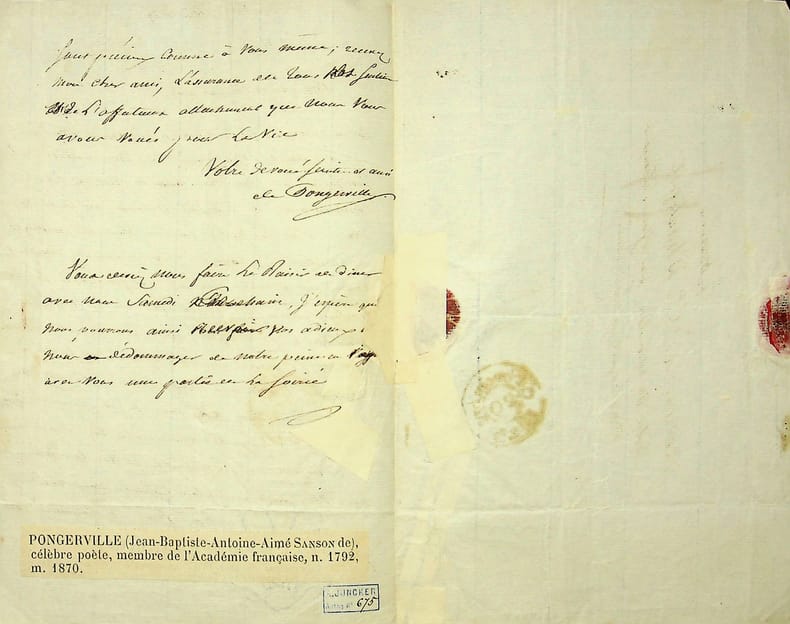 comme à Vous même ; recevez
mon cher ami, L'assurance de tous
de L'affectueux attachement que nous Vous
avons Voués pour La Vie
Votre dévoué ami
de Pongerville
Vous nous faire Le Plaisir de diner
avec nous Samedi prochain, J'espère que
nous pourrons ainsi Recevoir Vos adieux
nous dédommager de notre peine en
avec Vous une partie de La Soirée
PONGERVILLE (Jean-Baptiste-Antoine-Aimé SANSON de),
célèbre poète, membre de l'Académie française, n. 1792,
m. 1870.
JUNCKER
675